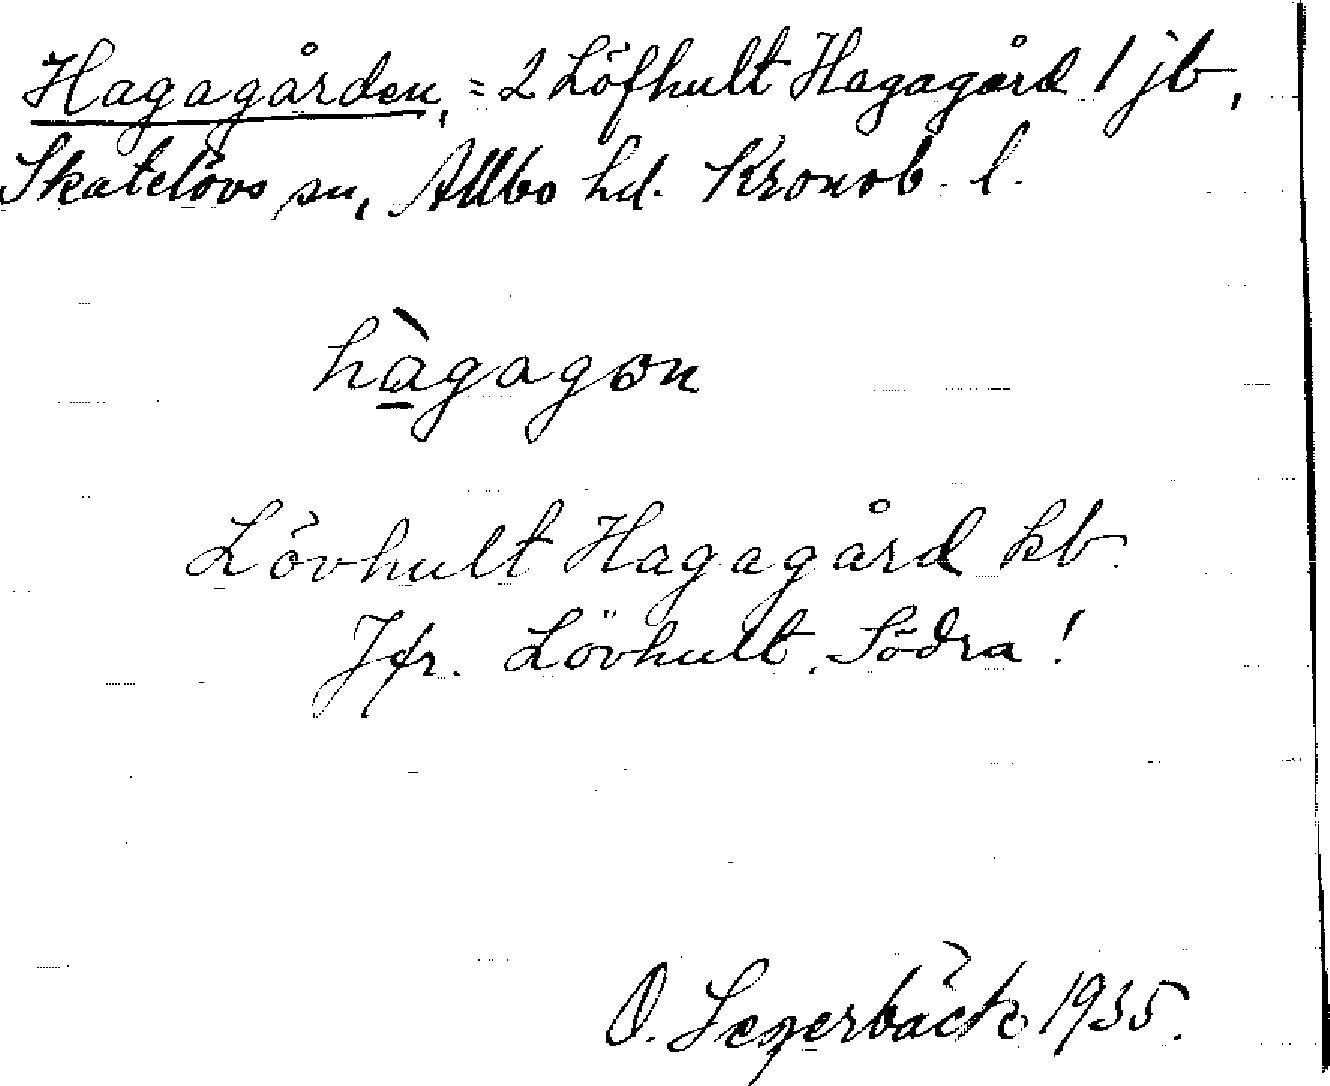 Hagagården, = 2 Löfhult Hagagård 1 jb,
Skatelövs sn, Allbo hd. Kronob. l.
hàgagon
Lövhult Hagagård kb.
Jfr. Lövhult, Södra!
O. Segerbäck 1935.